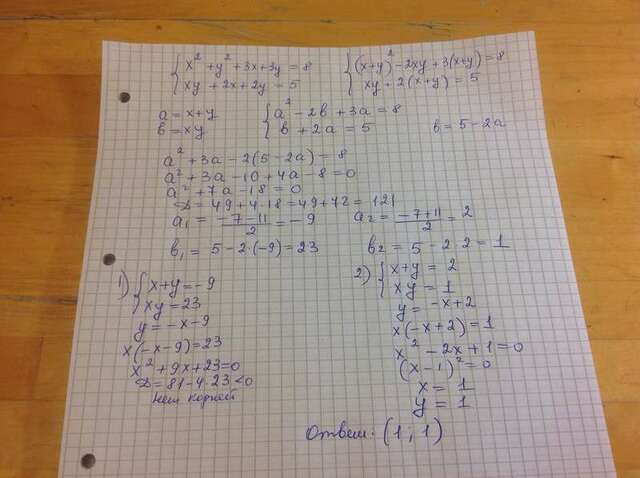 { x² + y² + 3x + 3y = 8
{ xy + 2x + 2y = 5
{ (x+y)² - 2xy + 3(x+y) = 8
{ xy + 2(x+y) = 5
a = x+y
b = xy
{ a² - 2b + 3a = 8
{ b + 2a = 5
b = 5 - 2a
a² + 3a - 2(5 - 2a) = 8
a² + 3a - 10 + 4a - 8 = 0
a² + 7a - 18 = 0
D = 49 + 4·18 = 49 + 72 = 121
a₁ = (-7-11)/2 = -9
a₂ = (-7+11)/2 = 2
b₁ = 5 - 2·(-9) = 23
b₂ = 5 - 2·2 = 1
1) { x+y = -9
{ xy = 23
y = -x-9
x(-x-9) = 23
x² + 9x + 23 = 0
D = 81 - 4·23 < 0
Нет корней
2) { x+y = 2
{ xy = 1
y = -x+2
x(-x+2) = 1
x² - 2x + 1 = 0
(x-1)² = 0
x = 1
y = 1
Ответ: (1; 1)